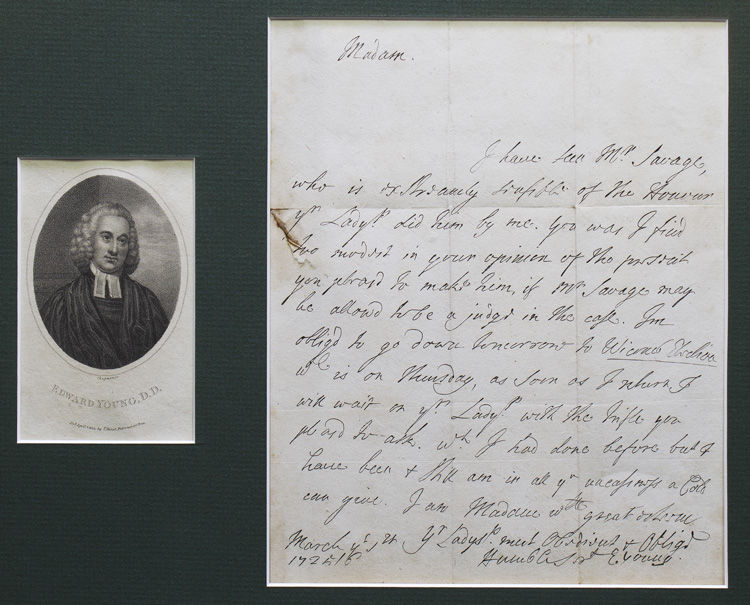 Madam.
I have seen Mr. Savage,
who is extreamly sensible of the Honour
yr Ladysp did him by me. you was I find
too modest in your opinion of the present
you pleasd to make him, if Mr Savage may
be allowd to be a judge in the case. I'm
oblig'd to go down tomorrow to
wch is on Thursday, as soon as I return I
will wait on yr Ladysp with the trifle you
pleasd to ask. wch I had done before but I
have been & still am in all ye uneasiness a Cold
can give. I am Madam wth great esteem
Yr Ladysps most Obedient & Obligd
Humble Sert EYoung.
March ye
1725/6
EDWARD YOUNG, D.D.